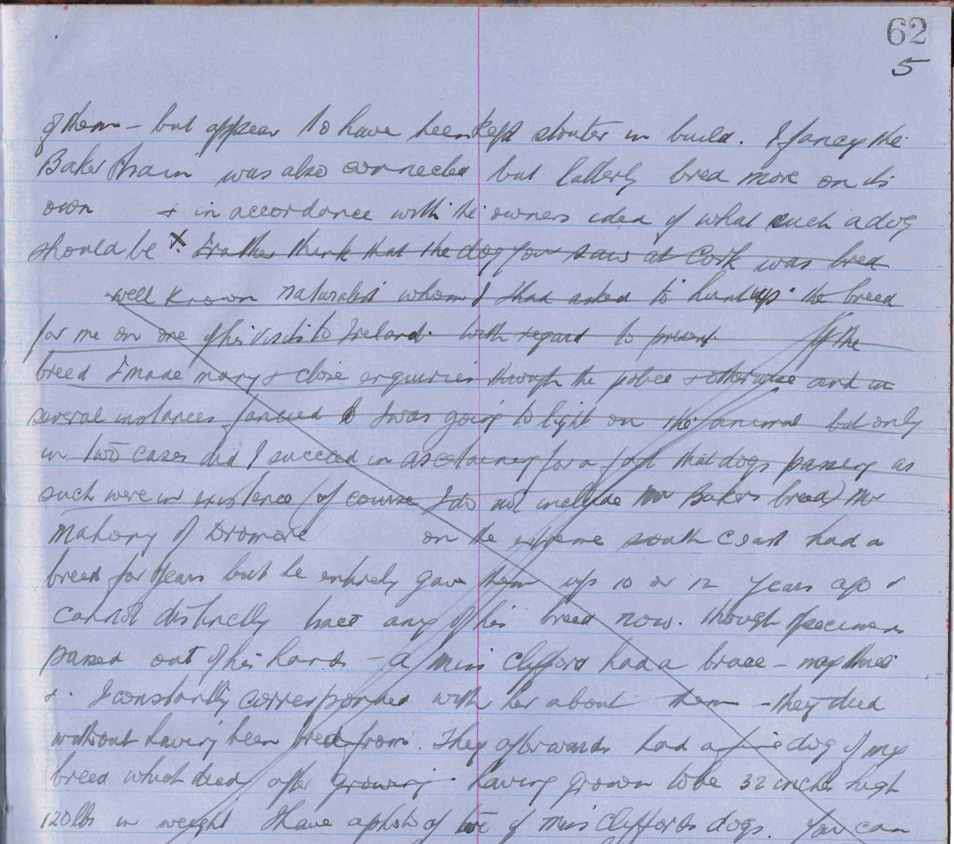 62
5
of them - but appear to have been kept stouter in build. I fancy the
Baker strain was also connected but latterly bred more on its
own + in accordance with the owners idea of what such a dog
should be x. I rather think that the dog you saw at Cork was bred
well known naturalist whom I had asked to hunt up the breed
for me on one of his visits to Ireland. With regard to present of the
breed I made many & close enquiries through the police & otherwise and in
several instances fancied I was going to light on the animal but only
in two cases did I succeed in ascertaining for a fact that dogs passing as
such were in existence (of course I do not include Mr Bakers breed) Mr
Mahony of Dromore on the extreme south coast had a
breed for years but he entirely gave them up 10 or 12 years ago &
cannot distinctly trace any of his breed now. though specimens
passed out of his hands - a Miss Clifford had a brace -
& I constantly corresponded with her about them - they died
without having been bred from. They afterwards had a fine dog of my
breed which died after growing having grown to be 32 inches high
120 lbs in weight I have a photo of of Miss Cliffords dogs. You can